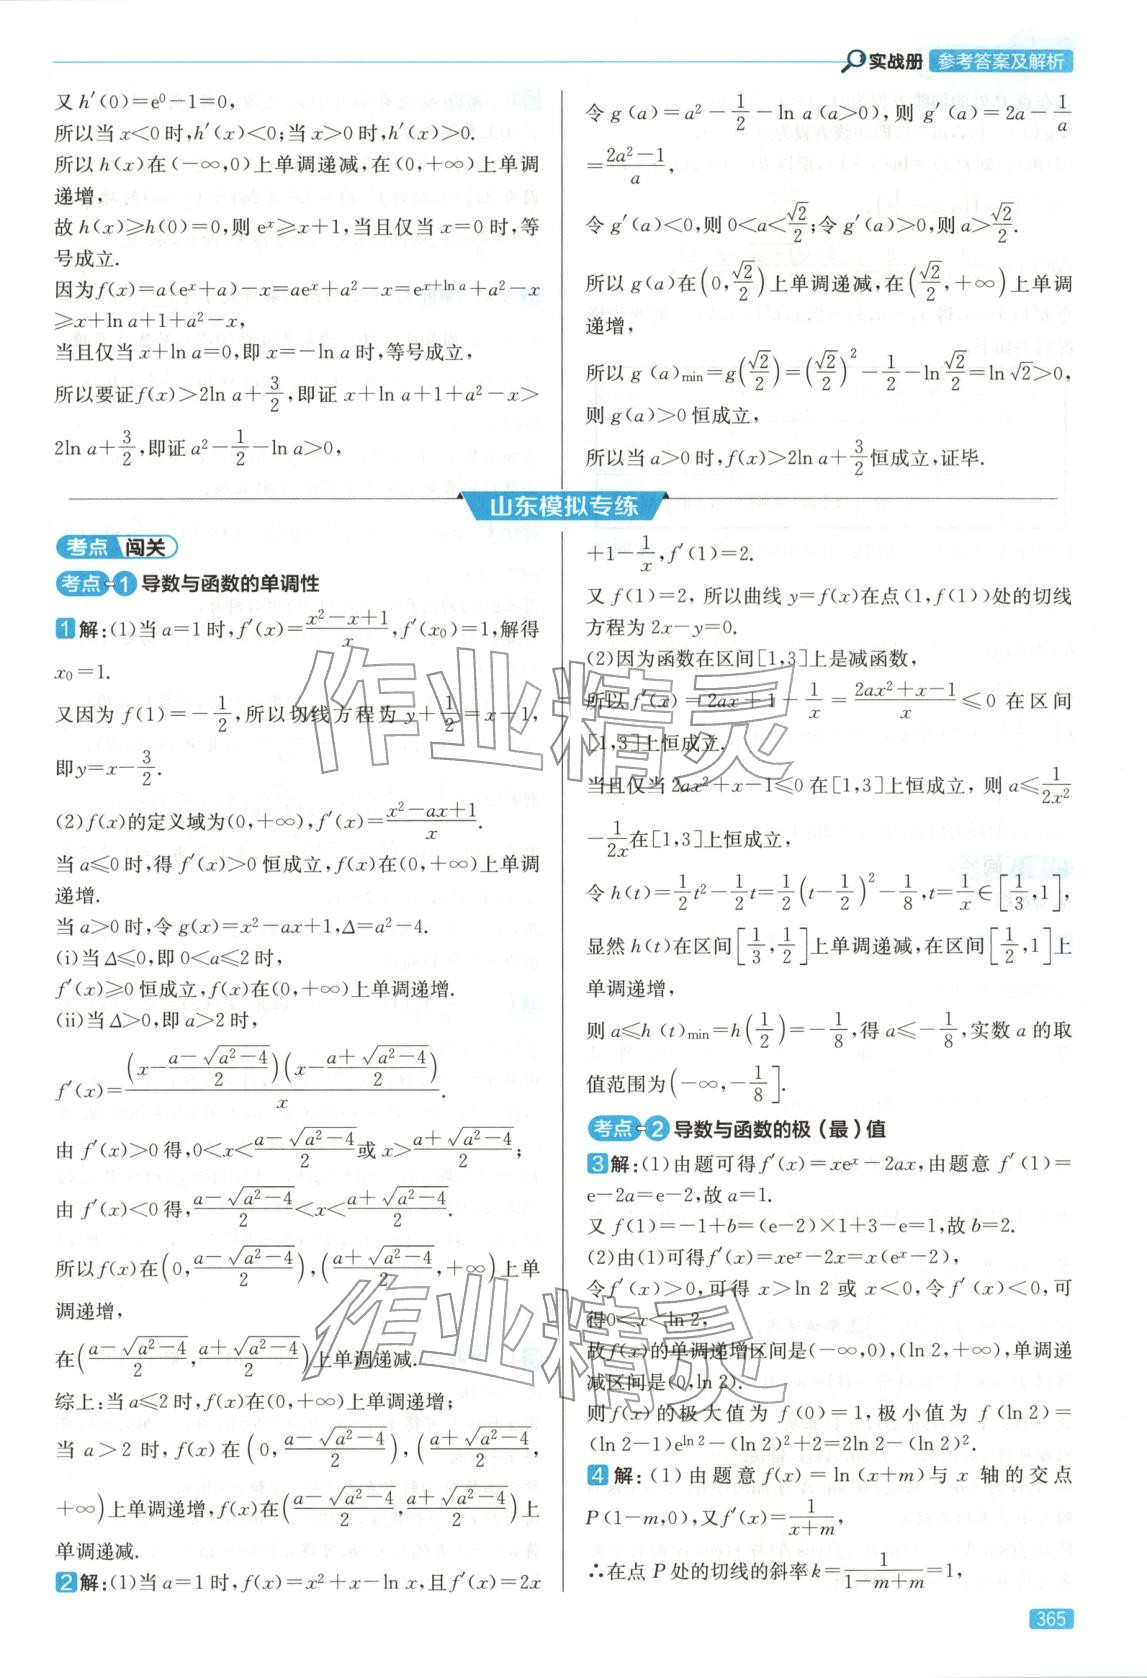 实战册 参考答案及解析
又 h′(0)=e⁰-1=0,
所以当 x<0 时,h′(x)<0;当 x>0 时,h′(x)>0.
所以 h(x)在(-∞,0)上单调递减,在(0,+∞)上单调
递增,
故 h(x)≥h(0)=0,则 eˣ≥x+1,当且仅当 x=0 时,等
号成立.
因为 f(x)=a(eˣ+a)-x=aeˣ+a²-x=e^(x+ln a)+a²-x
≥x+ln a+1+a²-x,
当且仅当 x+ln a=0,即 x=-ln a 时,等号成立,
所以要证 f(x)>2ln a+3/2,即证 x+ln a+1+a²-x>
2ln a+3/2,即证 a²-1/2-ln a>0,
令 g(a)=a²-1/2-ln a(a>0),则 g′(a)=2a-1/a
=(2a²-1)/a,
令 g′(a)<0,则 0<a<√2/2;令 g′(a)>0,则 a>√2/2.
所以 g(a)在(0,√2/2)上单调递减,在(√2/2,+∞)上单调
递增,
所以 g(a)min=g(√2/2)=(√2/2)²-1/2-ln √2/2=ln √2>0,
则 g(a)>0 恒成立,
所以当 a>0 时,f(x)>2ln a+3/2恒成立,证毕.
山东模拟专练
考点 闯关
考点-1 导数与函数的单调性
1 解:(1)当 a=1 时,f′(x)=(x²-x+1)/x,f′(x₀)=1,解得
x₀=1.
又因为 f(1)=-1/2,所以切线方程为 y+1/2=x-1,
即y=x-3/2.
(2)f(x)的定义域为(0,+∞),f′(x)=(x²-ax+1)/x.
当 a≤0 时,得 f′(x)>0 恒成立,f(x)在(0,+∞)上单调
递增.
当 a>0 时,令 g(x)=x²-ax+1,Δ=a²-4.
(i)当 Δ≤0,即 0<a≤2 时,
f′(x)≥0 恒成立,f(x)在(0,+∞)上单调递增.
(ii)当 Δ>0,即 a>2 时,
f′(x)=(x-(a-√(a²-4))/2)(x-(a+√(a²-4))/2)/x.
由 f′(x)>0 得,0<x<(a-√(a²-4))/2或 x>(a+√(a²-4))/2;
由 f′(x)<0 得,(a-√(a²-4))/2<x<(a+√(a²-4))/2.
所以 f(x)在(0,(a-√(a²-4))/2),((a+√(a²-4))/2,+∞)上单
调递增,
在((a-√(a²-4))/2,(a+√(a²-4))/2)上单调递减.
综上:当 a≤2 时,f(x)在(0,+∞)上单调递增;
当 a>2 时,f(x)在(0,(a-√(a²-4))/2),((a+√(a²-4))/2,
+∞)上单调递增,f(x)在((a-√(a²-4))/2,(a+√(a²-4))/2)上
单调递减.
2 解:(1)当 a=1 时,f(x)=x²+x-ln x,且 f′(x)=2x
+1-1/x,f′(1)=2.
又 f(1)=2,所以曲线 y=f(x)在点(1,f(1))处的切线
方程为 2x-y=0.
(2)因为函数在区间[1,3]上是减函数,
所以 f′(x)=2ax+1-1/x=(2ax²+x-1)/x≤0 在区间
[1,3]上恒成立.
当且仅当 2ax²+x-1≤0 在[1,3]上恒成立,则 a≤1/2x²
-1/2x在[1,3]上恒成立.
令 h(t)=1/2t²-1/2t=1/2(t-1/2)²-1/8,t=1/x∈[1/3,1],
显然 h(t)在区间[1/3,1/2]上单调递减,在区间[1/2,1]上
单调递增,
则 a≤h(t)min=h(1/2)=-1/8,得 a≤-1/8,实数 a 的取
值范围为(-∞,-1/8].
考点-2 导数与函数的极(最)值
3 解:(1)由题可得 f′(x)=xeˣ-2ax,由题意 f′(1)=
e-2a=e-2,故 a=1.
又 f(1)=-1+b=(e-2)×1+3-e=1,故 b=2.
(2)由(1)可得 f′(x)=xeˣ-2x=x(eˣ-2),
令 f′(x)>0,可得 x>ln 2 或 x<0,令 f′(x)<0,可
得0<x<ln 2,
故 f(x)的单调递增区间是(-∞,0),(ln 2,+∞),单调递
减区间是(0,ln 2).
则 f(x)的极大值为 f(0)=1,极小值为 f(ln 2)=
(ln 2-1)e^(ln 2)-(ln 2)²+2=2ln 2-(ln 2)².
4 解:(1)由题意 f(x)=ln(x+m)与 x 轴的交点
P(1-m,0),又 f′(x)=1/(x+m),
∴在点 P 处的切线的斜率 k=1/(1-m+m)=1,
365
作业精灵
作业精灵